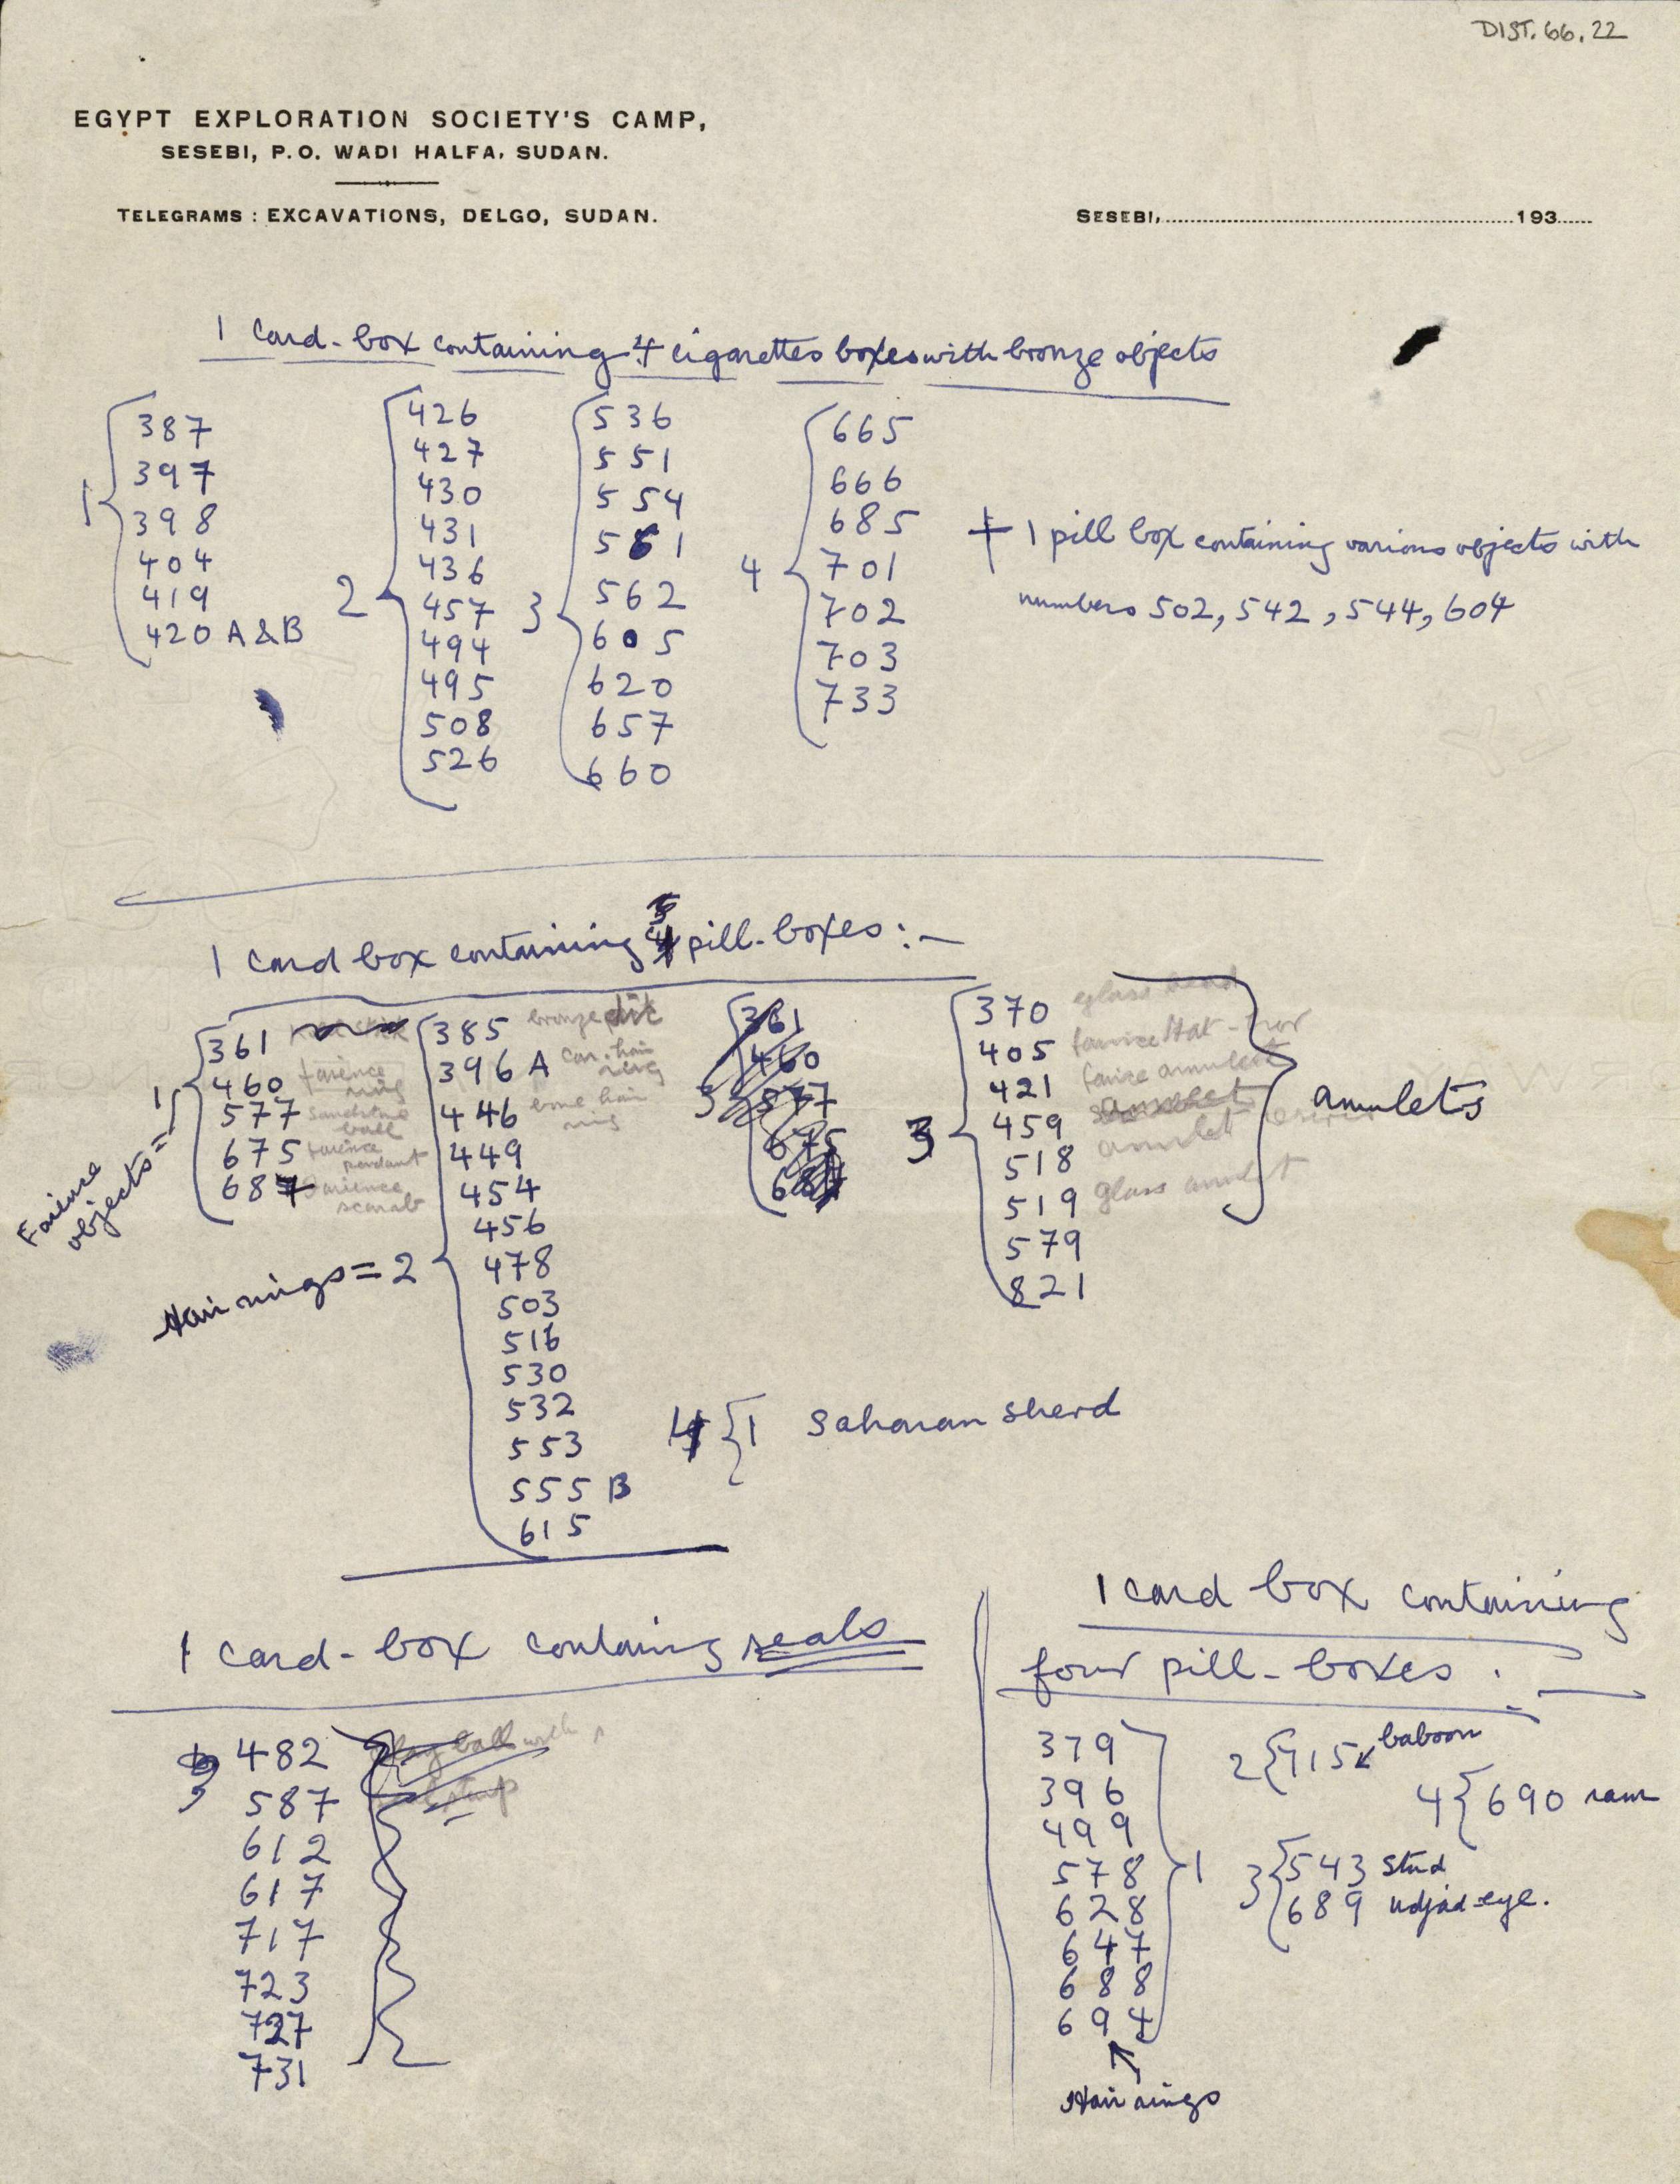 DIST. 66. 22
EGYPT EXPLORATION SOCIETY'S CAMP,
SESEBI, P.O. WADI HALFA, SUDAN.
TELEGRAMS : EXCAVATIONS, DELGO, SUDAN.
SESEBI,..........193......
1 Card-box containing 4 cigarettes boxes with bronze objects
1
387
397
398
404
419
420 A & B
2
426
427
430
431
436
457
494
495
508
526
3
536
551
554
561
562
605
620
657
660
4
665
666
685
701
702
703
733
+ 1 pill box containing various objects with
numbers 502, 542, 544, 604
1 Card box containing pill-boxes :-
Faience
objects = 1
361
460 faience ring
577 sandstone ball
675 faience pendant
687 faience scarab
Hair rings = 2
385 bronze
396 A car. hair ring
446 bone hair ring
449
454
456
478
503
516
530
532
553
555 B
615
3
361
460
577
675
687
3
370 glass bead
405
421
459 amulet
518 amulet
519 glass amulet
579
821
amulets
4 { 1 Saharan sherd
1 Card-box containg seals
482 clay ball with
587
612
617
717
723
727
731
1 card box containing
four pill-boxes :-
379
396
499
578
628
647
688
694
1
Hair rings
2 { 715 baboon
4 { 690 ram
3
543 stud
689 udjad-eye.